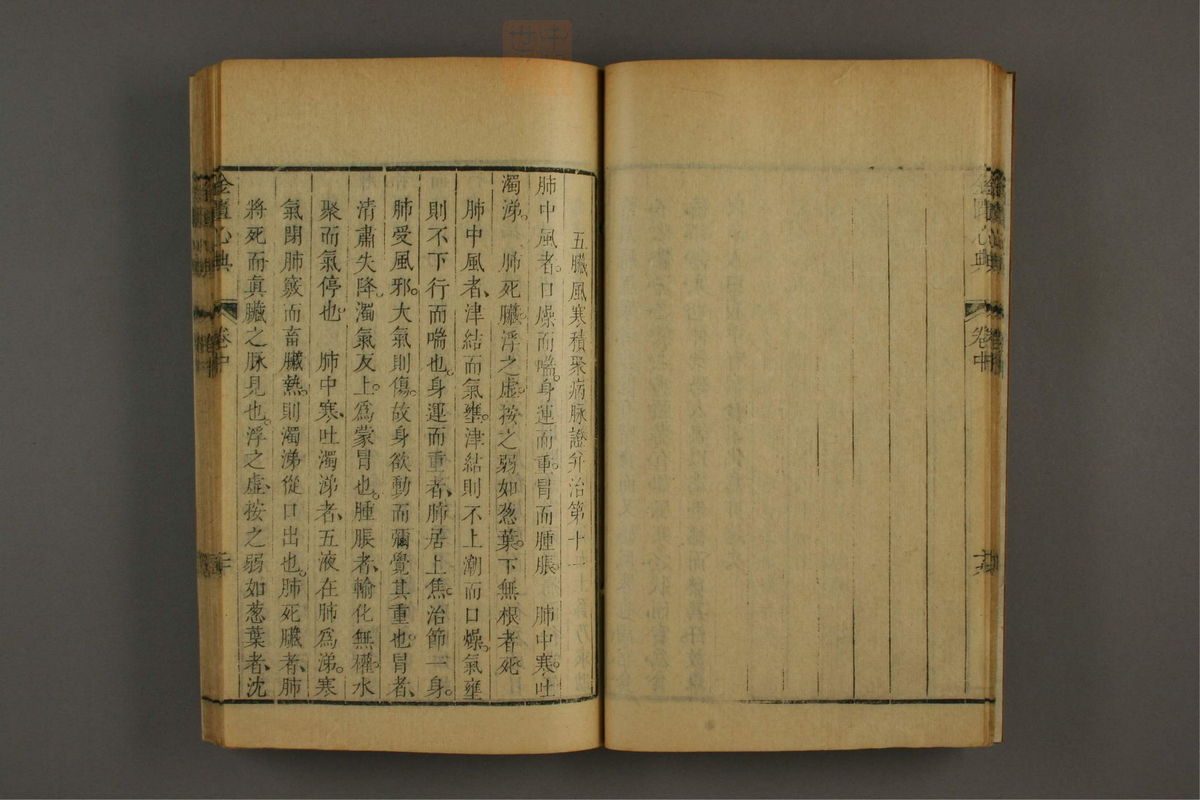 五臟風寒積聚病脉證并治第十一
肺中風者。口燥而喘。身運而重。冒而腫脹　肺中寒。吐
濁涕。　肺死臟。浮之虛。按之弱如葱葉。下無根者。死
肺中風者、津結而氣壅。津結則不上潮而口燥。氣壅
則不下行而喘也。身運而重者、肺居上焦。治節一身。
肺受風邪。大氣則傷。故身欲動而彌覺其重也。冒者、
清肅失降。濁氣反上。爲蒙冒也。腫脹者、輸化無權。水
聚而氣停也　肺中寒、吐濁涕者、五液在肺爲涕。寒
氣閉肺竅而畜臟熱。則濁涕從口出也。肺死臟者、肺
將死而真臟之脉見也。浮之虛、按之弱如葱葉者、沈
金匱心典
卷中
金匱心典
卷中